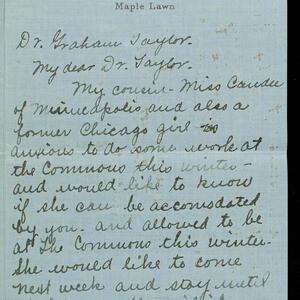 Maple Lawn
Dr. Graham Taylor.
My dear Dr. Taylor.
My cousin - Miss
of Minneapolis and also a
former Chicago girl is
anxious to do some work at
the Commons this winter -
and would like to know
if she can be accomodated
by you - and allowed to be
at The Commons this winter.
She would like to come
next week and stay until